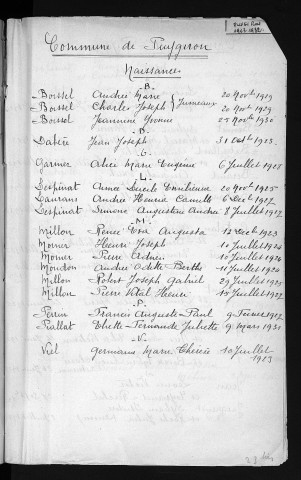 Commune de Puygiron
Naissances
-B-
Boissel Andrée Marie 20 Novbre 1929
Boissel Charles Joseph } Jumeaux 20 Novbre 1929
Boissel Jeannine Yvonne 25 Novbre 1930
-D-
Jean Joseph 31 Octbre 1923
-G-
Garnier Alice Marie Eugénie 6 Juillet 1928
-L-
Lespinat Aimée 20 Novbre 1925
Laurans Andrée Henria Camille 6 Decbre 1927
Lespinat Simone Augustine Andréa 8 Juillet 1932
-M-
Millon Augusta 12 Decbre 1923
Monier Henri Joseph 10 Juillet 1924
Monier Pierre 10 Juillet 1924
Mondon Andrée Odette Berthe 11 Juillet 1926
Millon Robert Joseph Gabriel 29 Juillet 1925
Millon Pierre Vital Henri 19 Juillet 1927
-P-
Perrin Francis Auguste Paul 9 Février 1927
Piallat Odette Fernande Juliette 9 Mars 1931
-V-
Viel Germaine Marie Thérèse 10 Juillet
1923